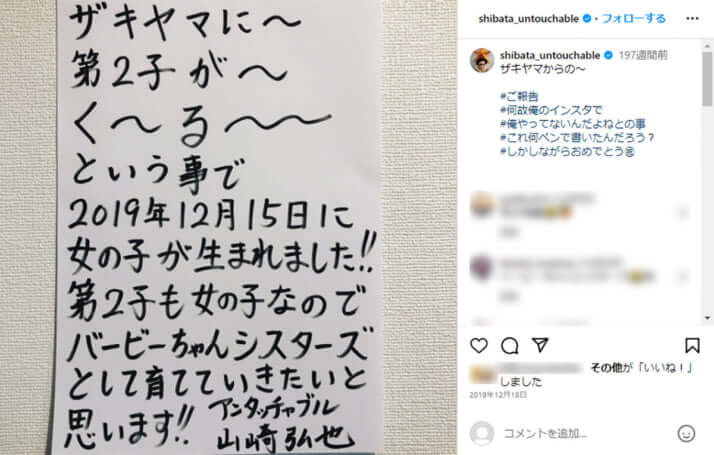 ザキヤマに〜
第2子が〜
く〜る〜〜
という事で
2019年12月15日に
女の子が生まれました!!
第2子も女の子なので
バービーちゃんシスターズ
として育てていきたいと
思います!!
アンタッチャブル
山崎弘也
shibata_untouchable • フォローする
shibata_untouchable 197週間前
ザキヤマからの〜
#ご報告
#何故俺のインスタで
#俺やってないんだよねとの事
#これ何ペンで書いたんだろう?
#しかしながらおめでとう㊗
その他が「いいね!」
しました
2019年12月18日
コメントを追加...